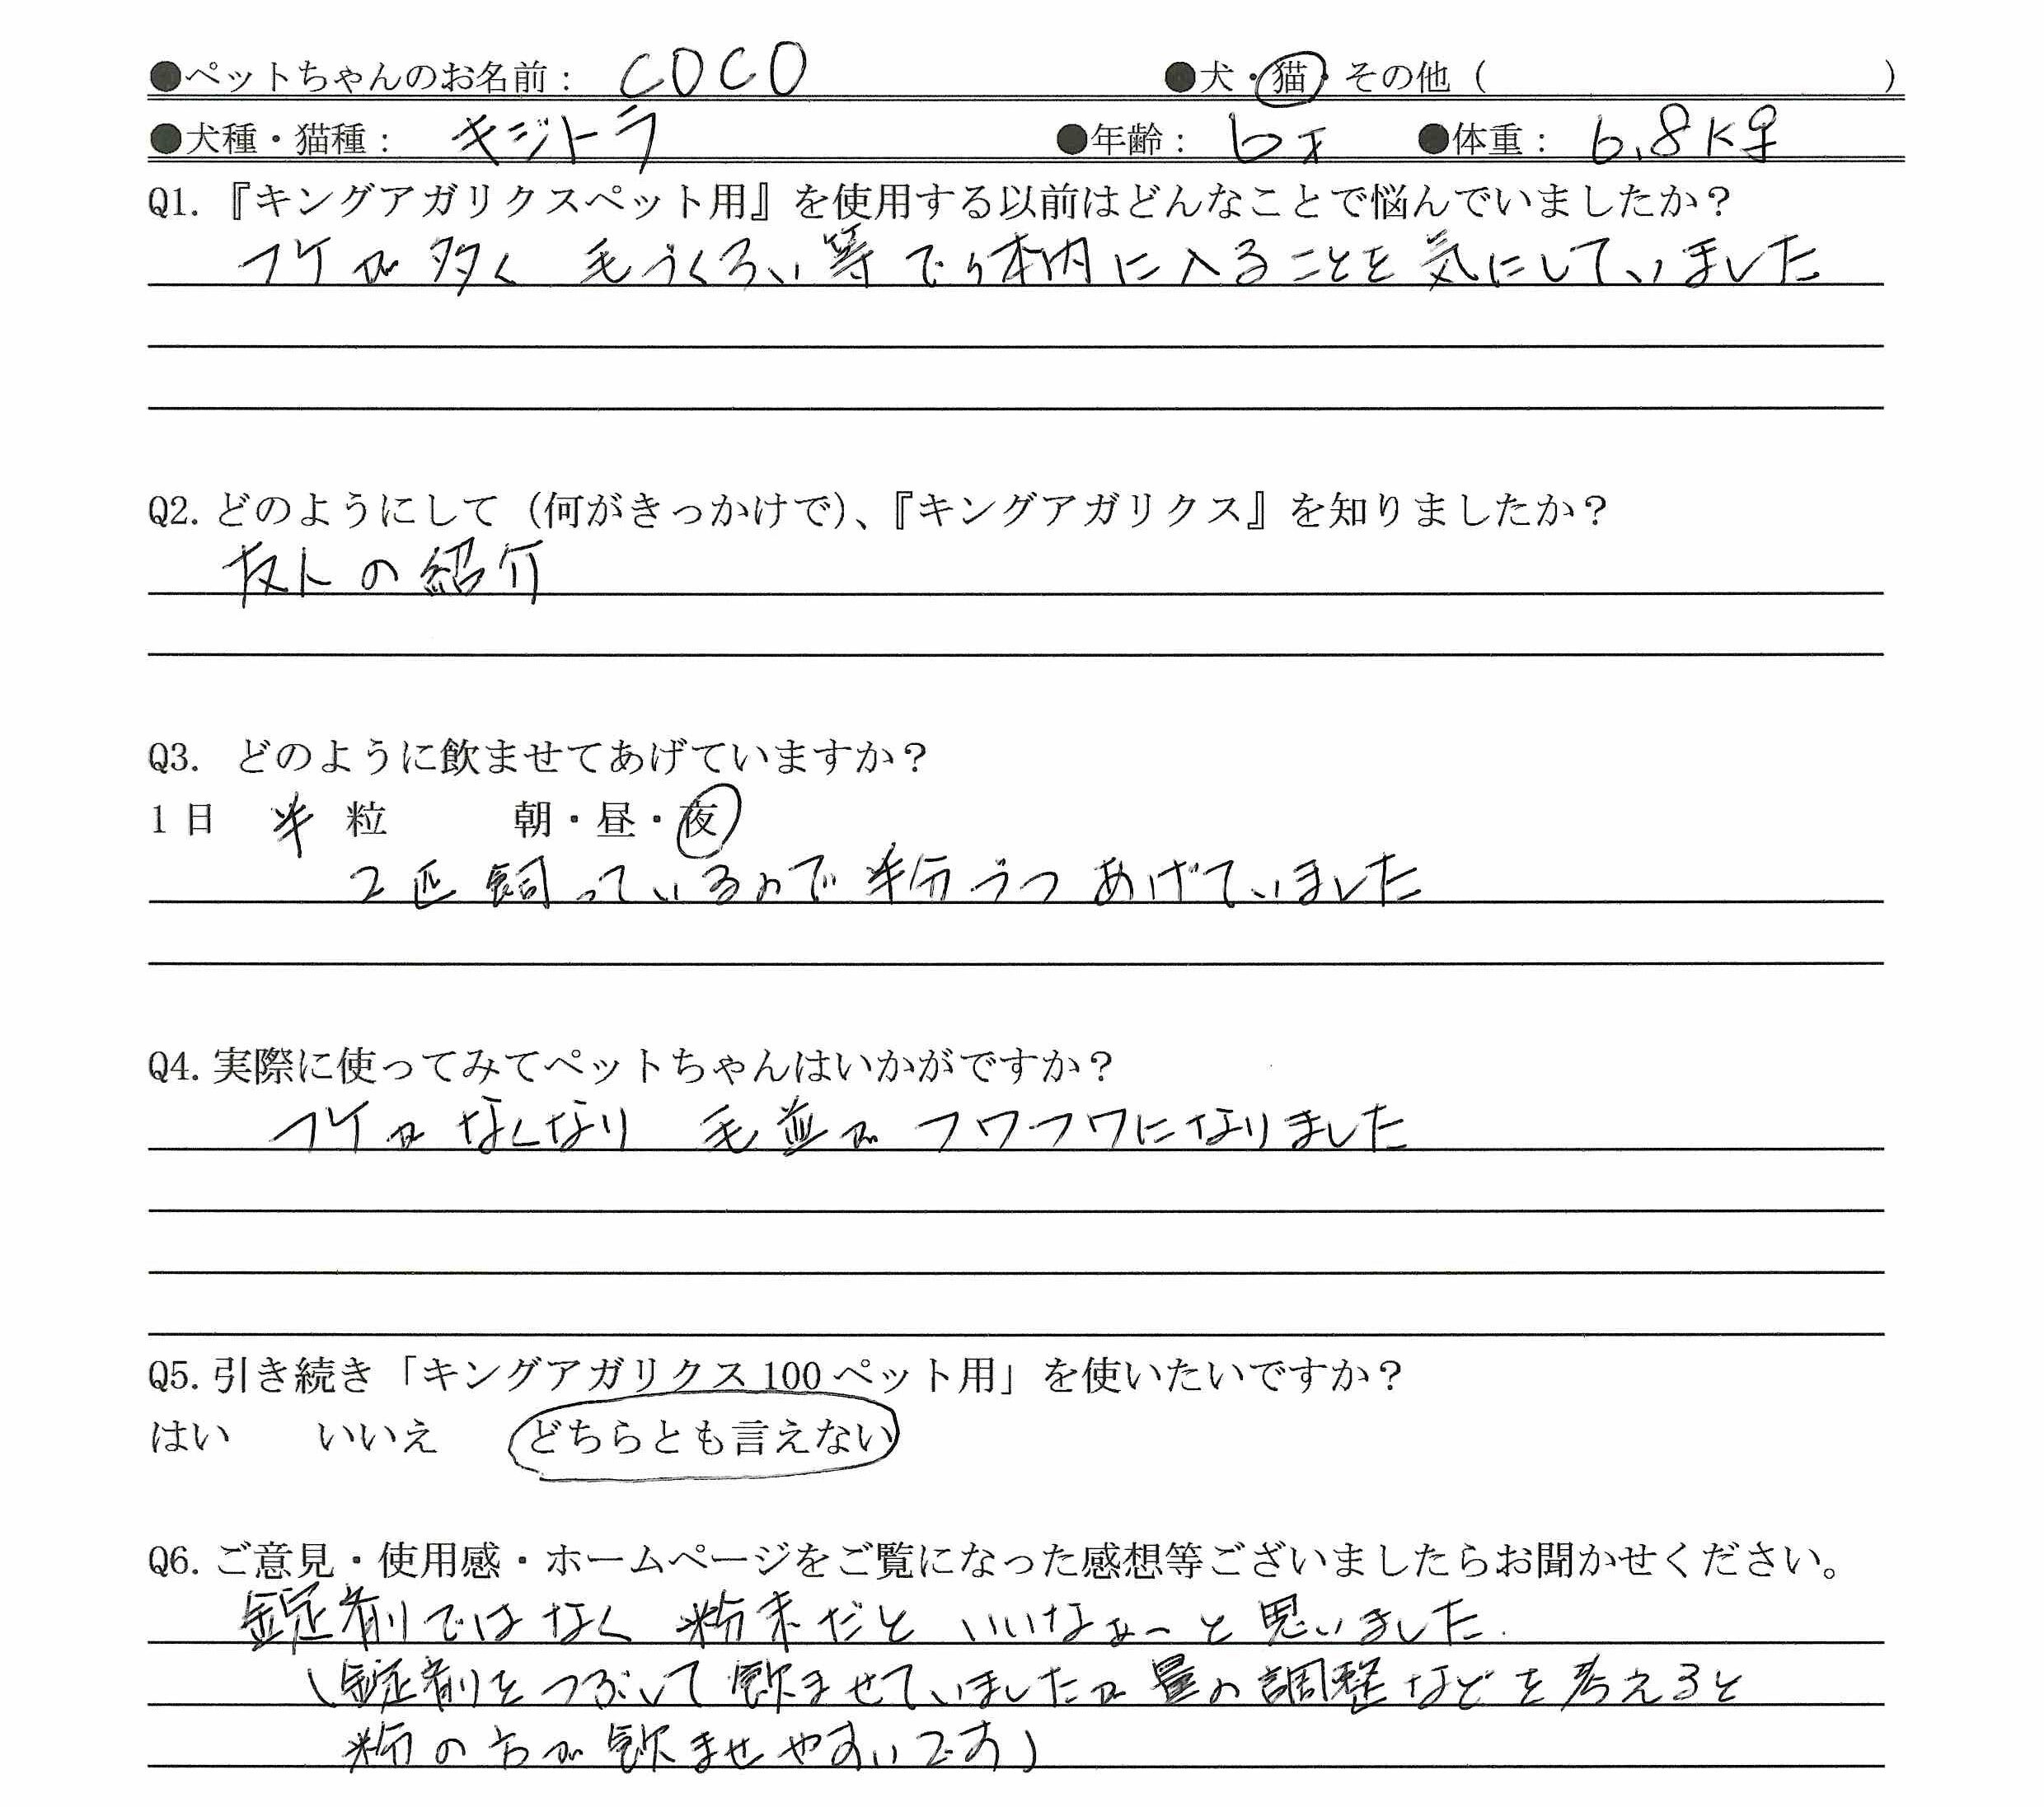 ●ペットちゃんのお名前： COCO ●犬・猫・その他（ ）
●犬種・猫種： キジトラ ●年齢： 6才 ●体重： 6.8kg
Q1.『キングアガリクスペット用』を使用する以前はどんなことで悩んでいましたか？
フケが多く 毛づくろい等で 体内に入ることを気にしていました
Q2.どのようにして（何がきっかけで）、『キングアガリクス』を知りましたか？
友人の紹介
Q3. どのように飲ませてあげていますか？
1日 半 粒 朝・昼・夜
2匹飼っているので半分づつあげていました
Q4.実際に使ってみてペットちゃんはいかがですか？
フケがなくなり 毛並がフワフワになりました
Q5.引き続き「キングアガリクス100ペット用」を使いたいですか？
はい いいえ どちらとも言えない
Q6.ご意見・使用感・ホームページをご覧になった感想等ございましたらお聞かせください。
錠剤ではなく 粉末だと いいなぁーと思いました.
（錠剤をつぶして飲ませていましたが量の調整などを考えると
粉の方が飲ませやすいです）